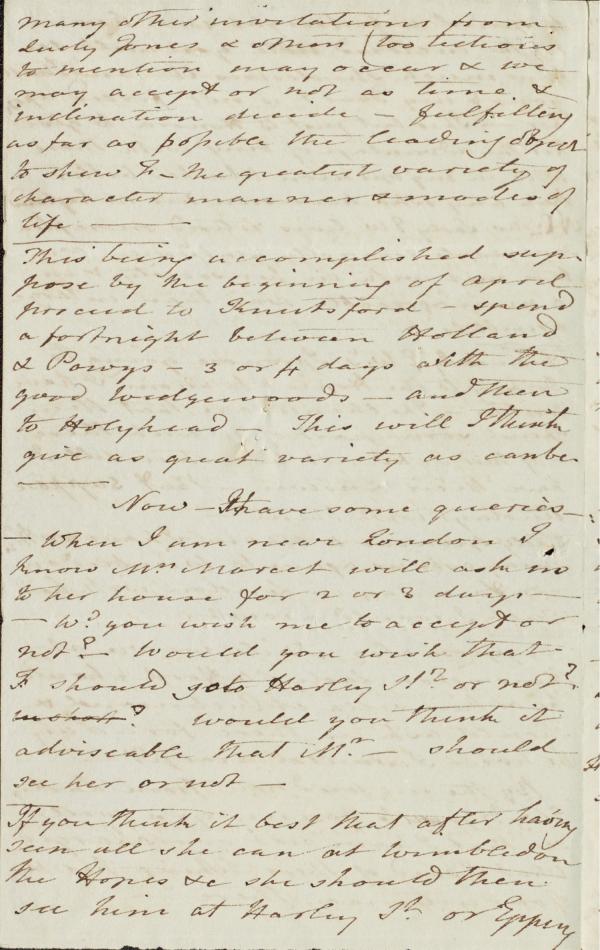 many other invitations from
Lady Jones & others (too tedious
to mention may occur & we
may accept or not as time &
inclination decide – fulfilling
as far as possible the leading object
to shew F– the greatest variety of
character manner & modes of
life ———
This being accomplished sup-
pose by the beginning of April
proceed to Knutsford – spend
a fortnight between Holland
& Powys – 3 or 4 days with the
good Wedgewoods – and then
to Holyhead – This will I think
give as great variety as can be
———
Now – I have some queries –
– When I am near London I
know Mrs Marcet will ask me
to her house for 2 or 3 days –
– Wd. you wish me to accept or
not? – Would you wish that
F should go to Harley St. or not?
in short? would you think it
adviseable that Mr. – should
see her or not –
If you think it best that after having
seen all she can at Wimbledon
the Hopes &c she should then
see him at Harley St. or Epping